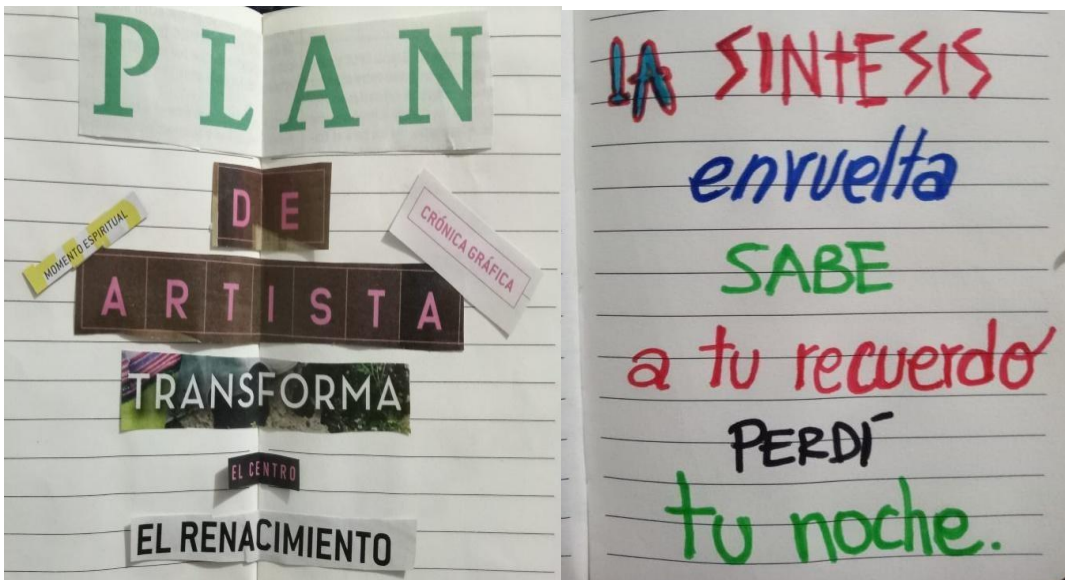 PLAN
DE
MOMENTO ESPIRITUAL
CRÓNICA GRÁFICA
ARTISTA
TRANSFORMA
EL CENTRO
EL RENACIMIENTO
LA SINTESIS
envuelta
SABE
a tu recuerdo
PERDÍ
tu noche.